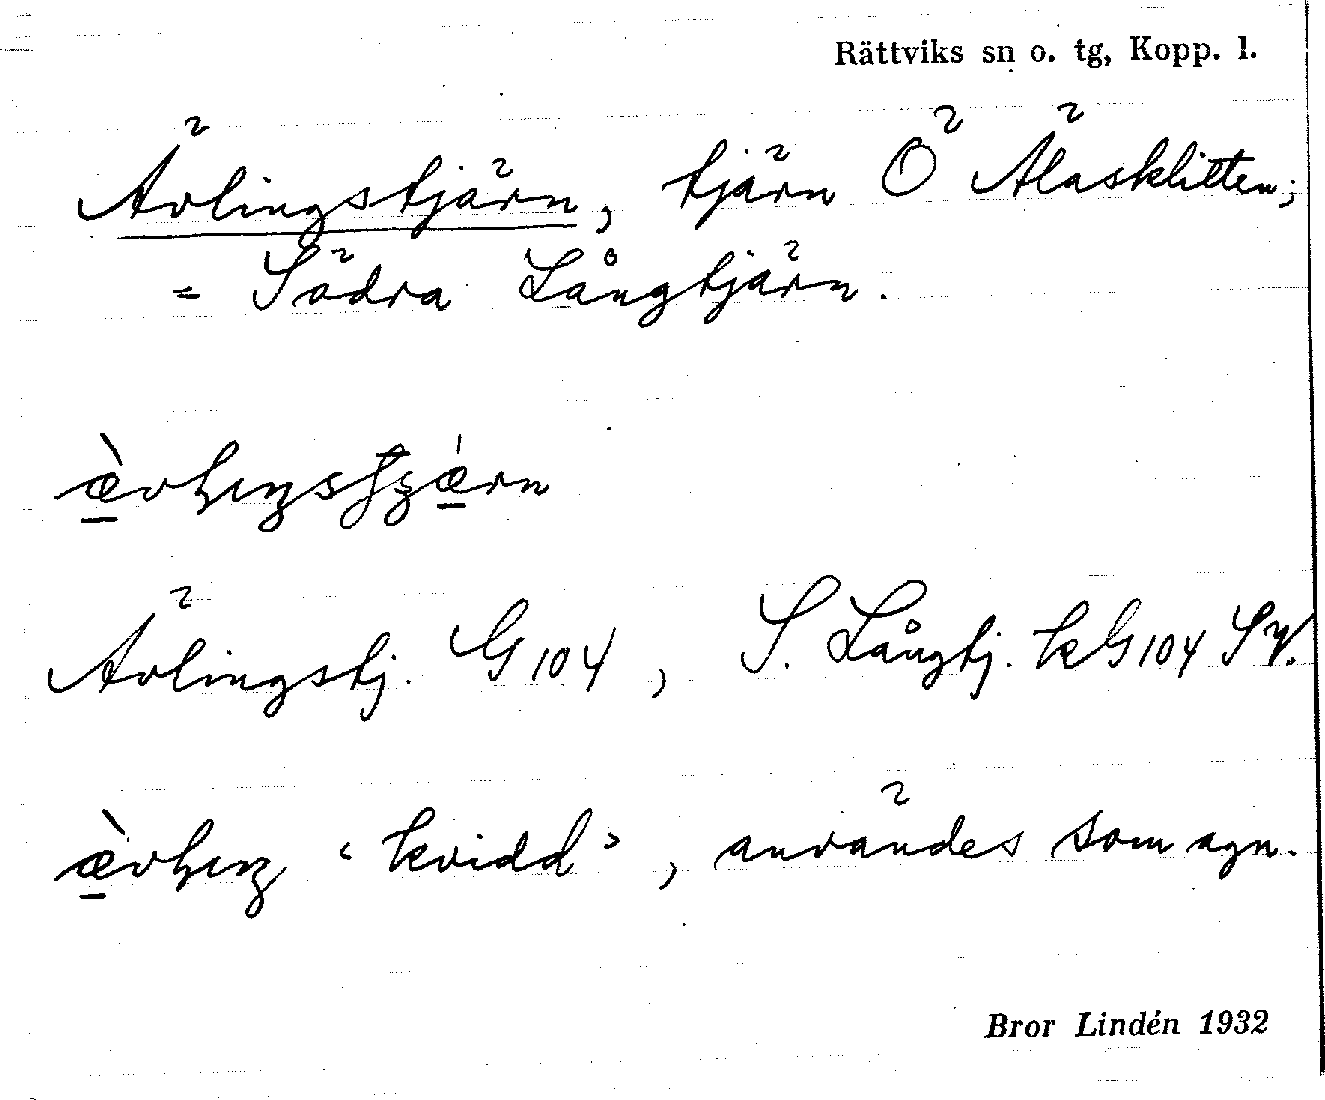 Rättviks sn o. tg, Kopp. l.
Ävlingstjärn, tjärn Ö Älasklitten;
= Södra Långtjärn.
Ävlingstj. G104, S. Långtj. kG104 SV.
"kvidd", användes som agn.
Bror Lindén 1932